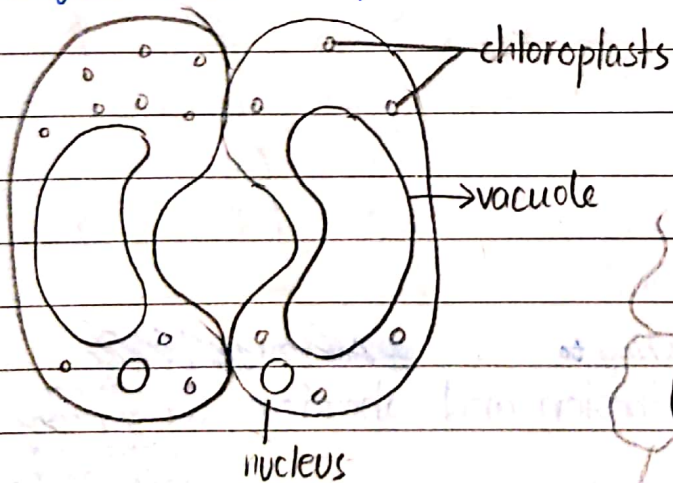 chloroplasts
vacuole
nucleus